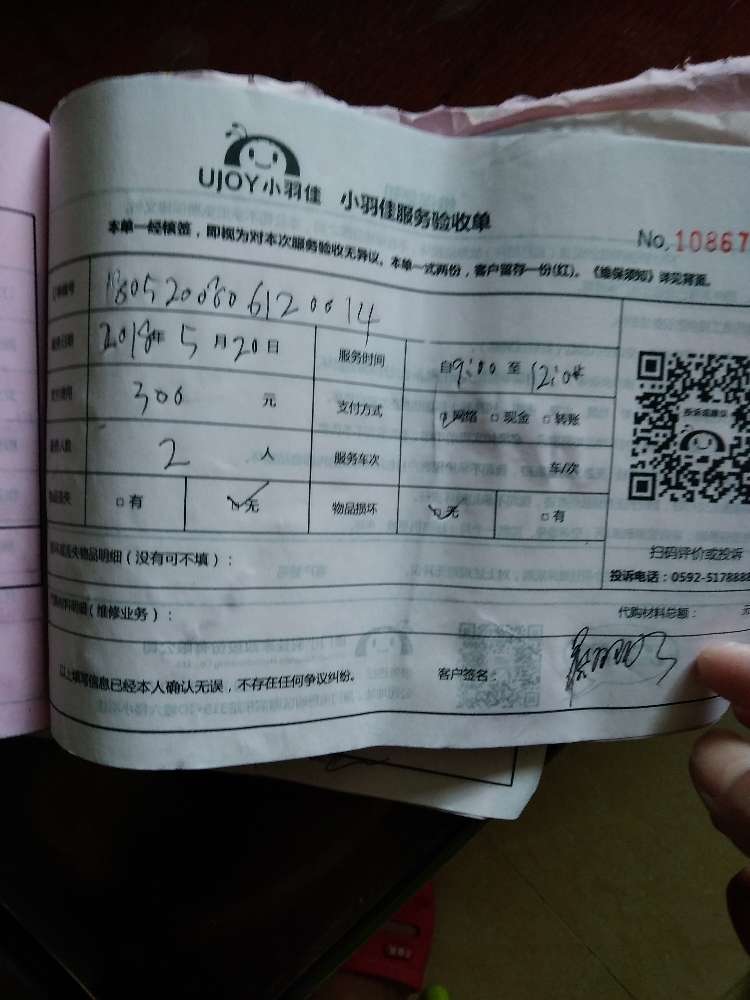 UJOY小羽佳 小羽佳服务验收单
No. 10867
本单一经核签，即视为对本次服务验收无异议。本单一式两份，客户留存一份(红)。《维保须知》详见背面。
订单编号 1805200806120014
服务日期 2018年 5 月 20 日 服务时间 自 9:00 至 12:00
费用 300 元 支付方式 网络 □ 现金 □ 转账
人数 2 人 服务车次 车/次
物品丢失 □ 有 无 物品损坏 无 □ 有
扫码评价或投诉
丢失物品明细（没有可不填）：
投诉电话：0592-5178888
材料明细（维修业务）： 代购材料总额： 元
以上填写信息已经本人确认无误，不存在任何争议纠纷。 客户签名：